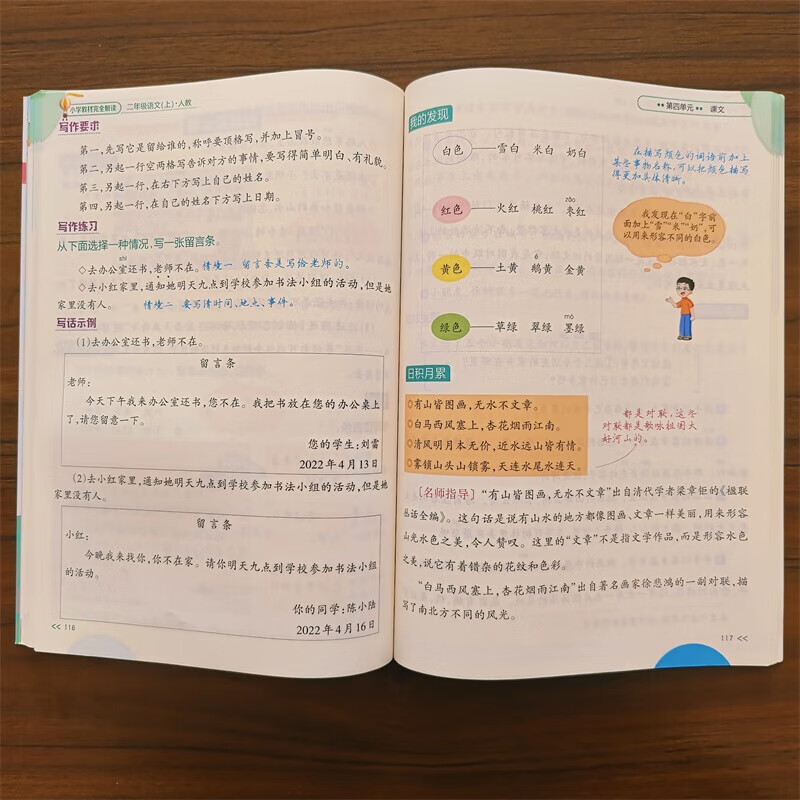 小学教材完全解读
二年级语文(上)·人教
写作要求
第一,先写它是留给谁的,称呼要顶格写,并加上冒号。
第二,另起一行空两格写告诉对方的事情,要写得简单明白、有礼貌。
第三,另起一行,在右下方写上自己的姓名。
第四,另起一行,在自己的姓名下方写上日期。
写作练习
从下面选择一种情况,写一张留言条。
shì
◇去办公室还书,老师不在。 情境一 留言条是写给老师的。
◇去小红家里,通知她明天九点到学校参加书法小组的活动,但是她
家里没有人。 情境二 要写清时间、地点、事件。
写话示例
(1)去办公室还书,老师不在。
留言条
老师:
今天下午我来办公室还书,您不在。我把书放在您的办公桌上
了,请您留意一下。
您的学生:刘雷
2022年4月13日
(2)去小红家里,通知她明天九点到学校参加书法小组的活动,但是她
家里没有人。
留言条
小红:
今晚我来找你,你不在家。请你明天九点到学校参加书法小组
的活动。
你的同学:陈小陆
2022年4月16日
<< 116
第四单元 课文
我的发现
白色 雪白 米白 奶白
zǎo
红色 火红 桃红 枣红
é
黄色 土黄 鹅黄 金黄
mò
绿色 草绿 翠绿 墨绿
在描写颜色的词语前加上
某些事物名称,可以把颜色描写
得更加具体清晰。
我发现在“白”字前
面加上“雪”“米”“奶”,可
以用来形容不同的白色。
日积月累
◎有山皆图画,无水不文章。
◎白马西风塞上,杏花烟雨江南。
◎清风明月本无价,近水远山皆有情。
◎雾锁山头山锁雾,天连水尾水连天。
都是对联,这些
对联都是歌咏祖国大
好河山的。
[名师指导]“有山皆图画,无水不文章”出自清代学者梁章钜的《楹联
丛话全编》。这句话是说有山水的地方都像图画、文章一样美丽,用来形容
山光水色之美,令人赞叹。这里的“文章”不是指文学作品,而是形容水色
之美,说它有着错杂的花纹和色彩。
“白马西风塞上,杏花烟雨江南”出自著名画家徐悲鸿的一副对联,描
写了南北方不同的风光。
117 <<